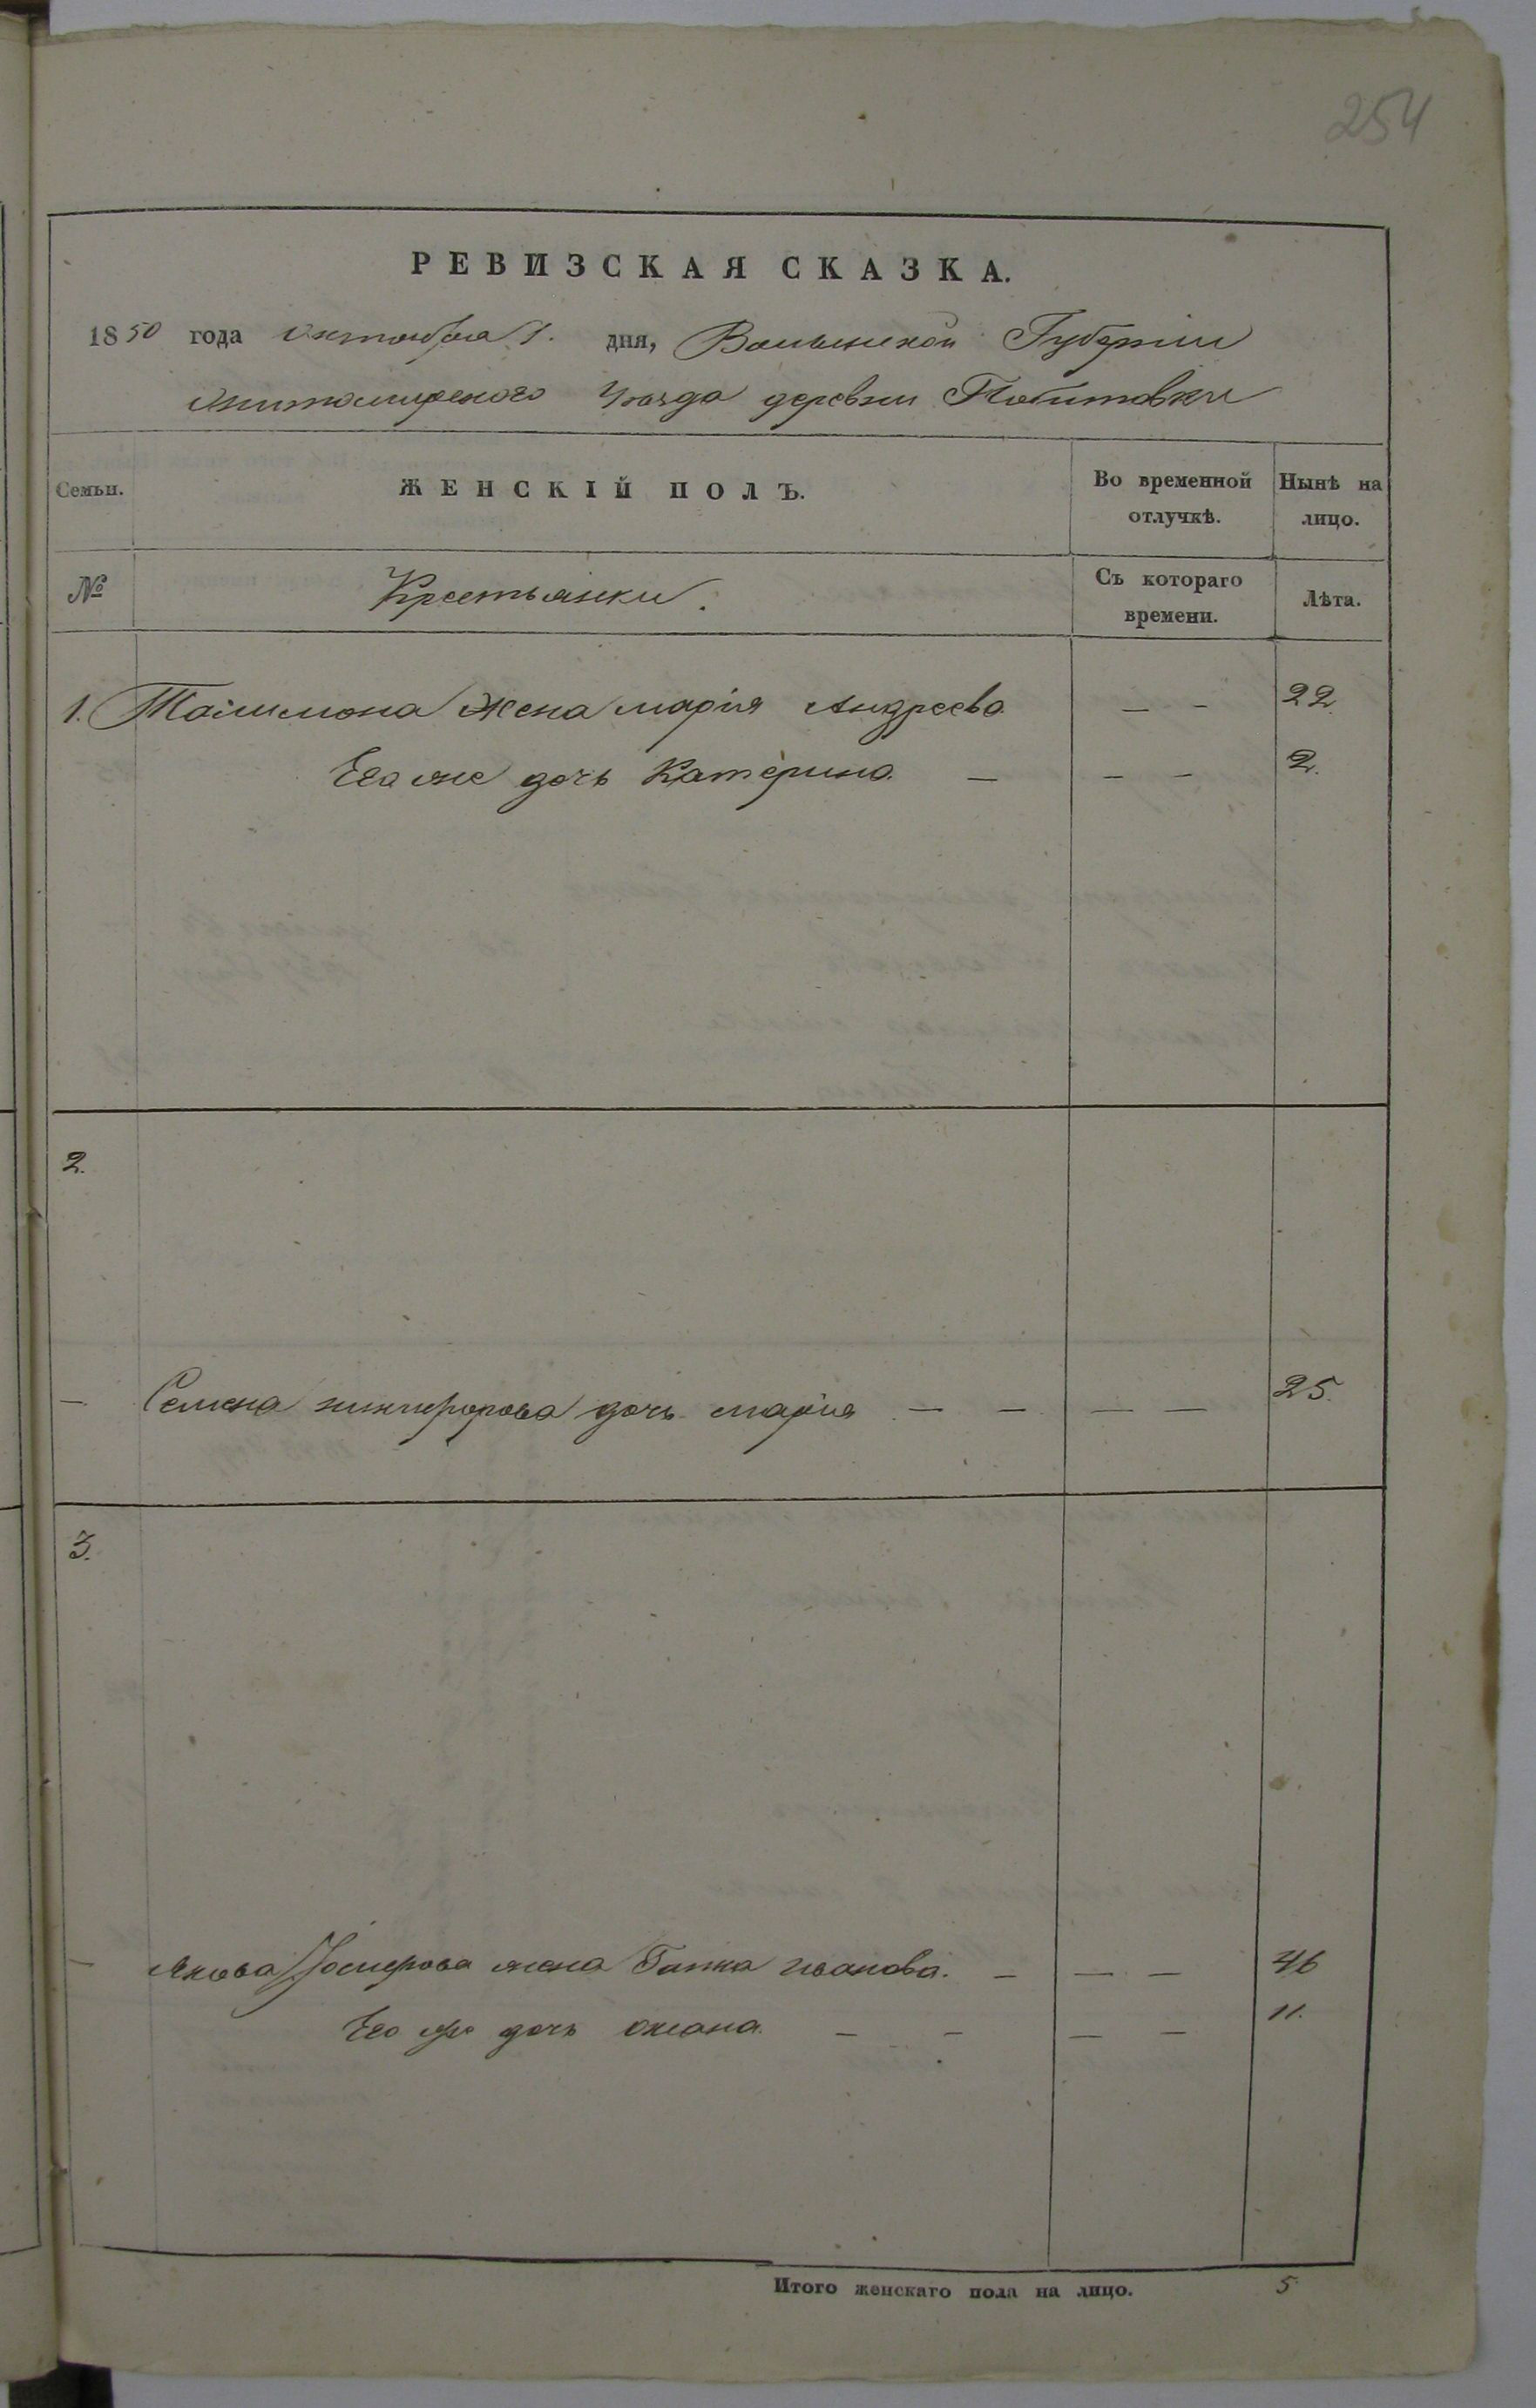 254
РЕВИЗСКАЯ СКАЗКА.
1850 года Октября 1. дня, Волынской Губерніи
Житомирского Уезда деревни
Семьи. ЖЕНСКІЙ ПОЛЪ. Во временной отлучкѣ. Нынѣ на лицо.
№ Крестьянки. Съ котораго времени. Лѣта.
1. жена марія Андреева — — 22.
Его же дочь Катерина — — — 2.
2.
— Семена никифорова дочь марія — — — — 25.
3.
— Якова жена Гапка иванова. — — — 46
Его же дочь оксана — — — — 11.
Итого женскаго пола на лицо. 5